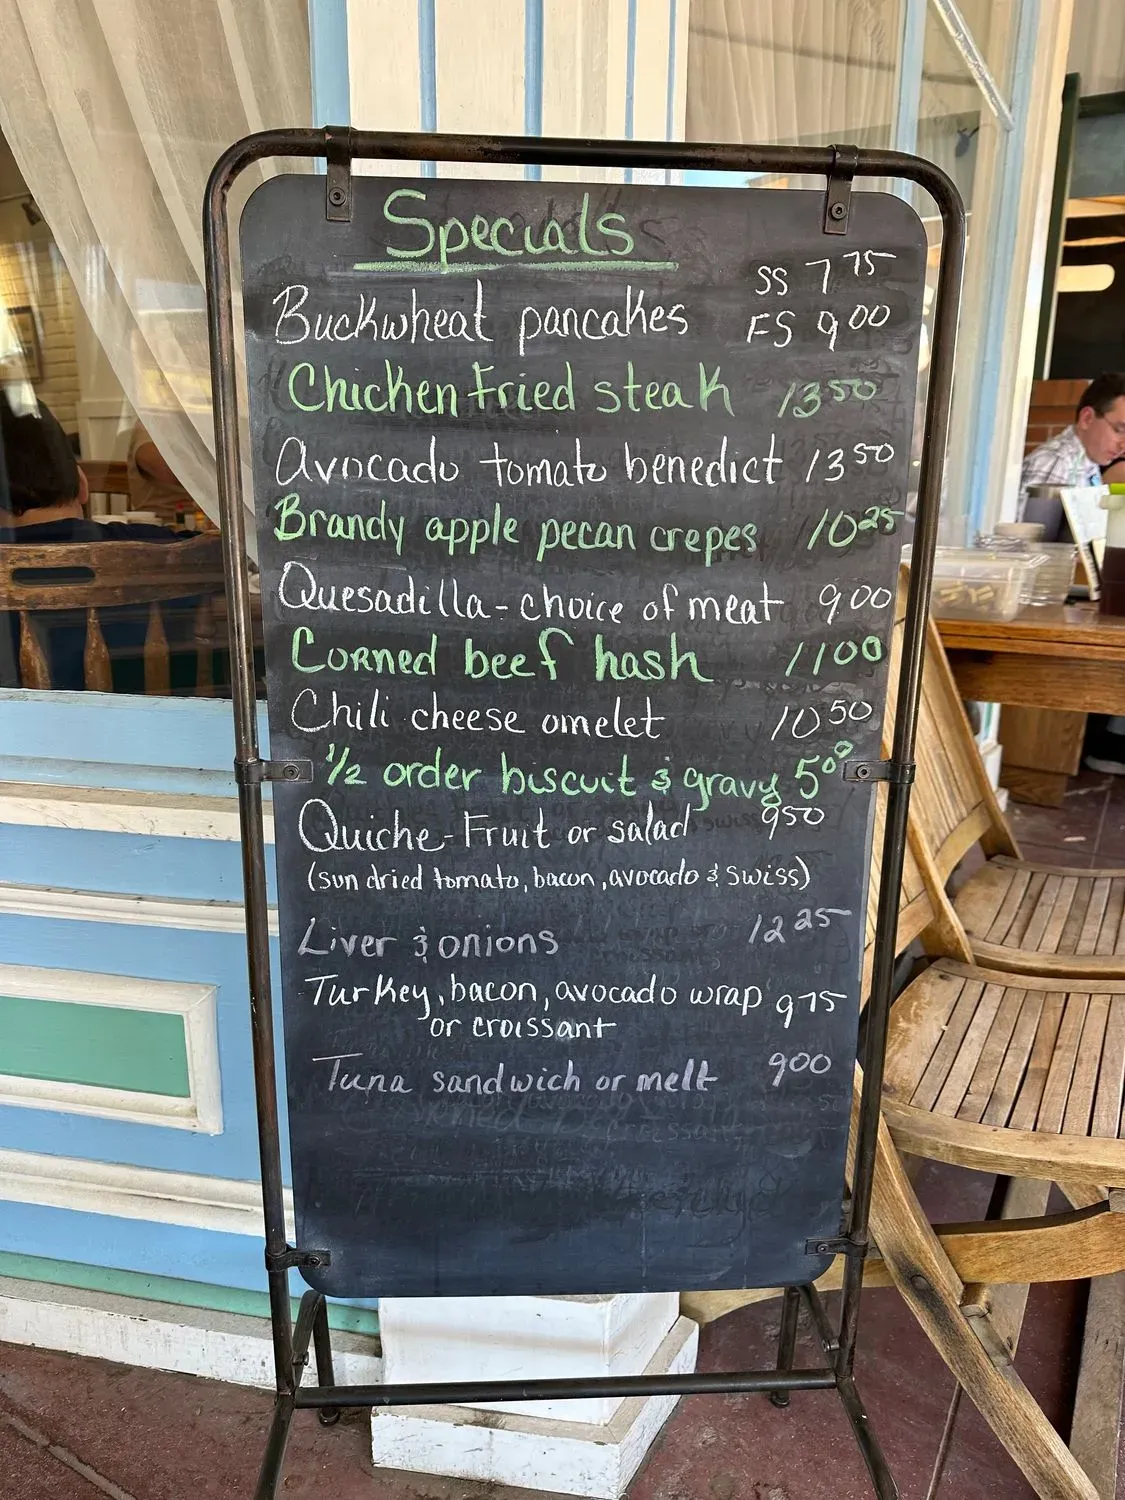 Specials
SS 7 75
Buckwheat pancakes FS 9 00
Chicken Fried steak 13 50
Avocado tomato benedict 13 50
Brandy apple pecan crepes 10 25
Quesadilla - choice of meat 9 00
Corned beef hash 11 00
Chili cheese omelet 10 50
1/2 order biscuit & gravy 5 00
Quiche - Fruit or salad 9 50
(sun dried tomato, bacon, avocado & swiss)
Liver & onions 12 25
Turkey, bacon, avocado wrap 9 75
or croissant
Tuna sandwich or melt 9 00